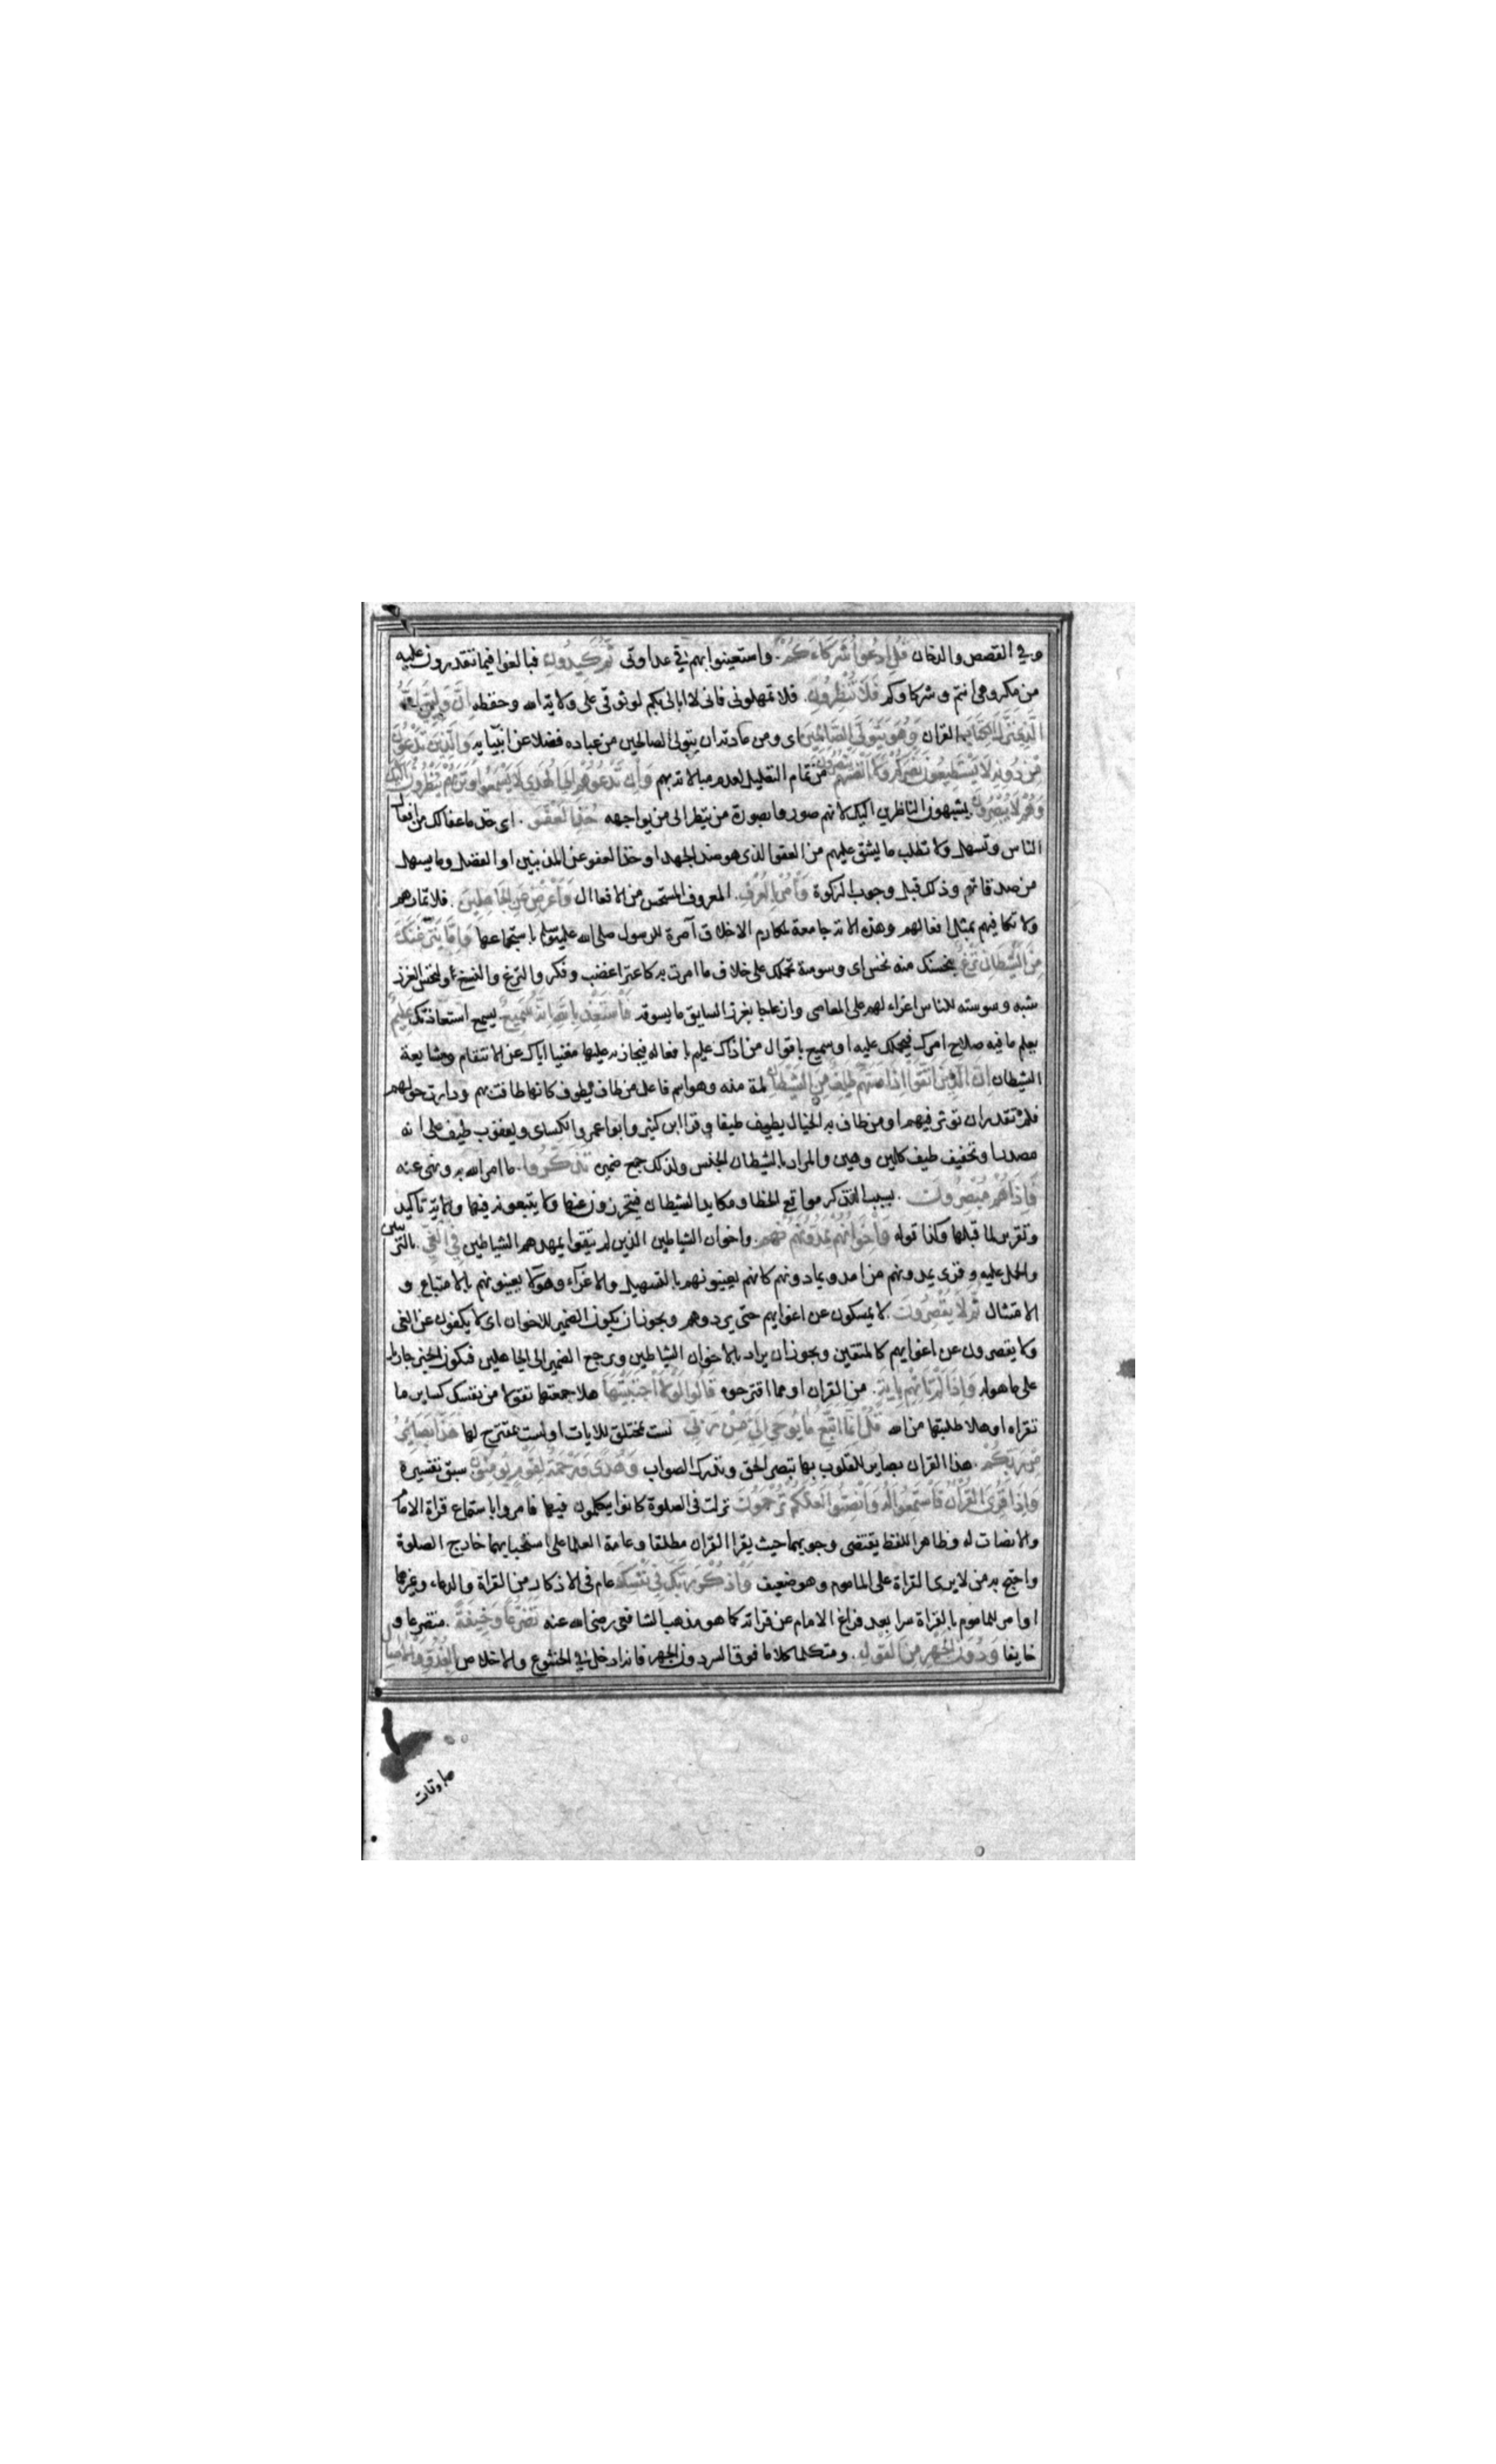 وفي القصص والدخان قل ادعوا شركاءكم. واستعينوا بهم في عداوتي ثم كيدون فبالغوا فيما تقدرون عليه
من مكروهي انتم وشركاوكم فلا تنظرون. فلا تمهلوني فاني لا ابالي بكم لوثوقي على ولاية الله وحفظه ان وليي الله
الذي نزل الكتاب القران وهو يتولى الصالحين اي ومن عادته ان يتولى الصالحين من عباده فضلا عن انبيايه والذين تدعون
من دونه لا يستطيعون نصركم ولا انفسهم ينصرون من تمام التعليل لعدم مبالاته بهم وان تدعوهم الى الهدى لا يسمعوا وتريهم ينظرون اليك
وهم لا يبصرون يشبهون الناظرين اليك لانهم صوروا بصورة من ينظر الى من يواجهه خذ العفو. اي خذ ما عفا لك من افعال
الناس وتسهل ولا تطلب ما يشق عليهم من العفو الذي هو ضد الجهد او خذ العفو عن المذنبين او الفضل وما يسهل
من صدقاتهم وذلك قبل وجوب الزكوة وامر بالعرف. المعروف المستحسن من الافعال واعرض عن الجاهلين. فلا تمارهم
ولا تكافيهم بمثل افعالهم وهذه الاية جامعة لمكارم الاخلاق آمرة للرسول صلى الله عليه وسلم باستجماعها واما ينزغنك
من الشيطان نزغ ينخسنك منه نخس اي وسوسة تحملك على خلاف ما امرت به كاعتراء غضب وفكر والنزغ والنسغ والنخس الغرز
شبه وسوسته للناس اغراء لهم على المعاصي وازعاجا بغرز السايق ما يسوقه فاستعذ بالله انه سميع يسمع استعاذتك عليم
يعلم ما فيه صلاح امرك فيحملك عليه او سميع باقوال من اذاك عليم بافعاله فيجازيه عليها مغنيا اياك عن الانتقام ومشايعة
الشيطان ان الذين اتقوا اذا مسهم طايف من الشيطان لمة منه وهو اسم فاعل من طاف يطوف كانها طافت بهم ودارت حولهم
فلم تقدر ان توثر فيهم او من طاف به الخيال يطيف طيفا وقرا ابن كثير وابو عمرو والكساي ويعقوب طيف على انه
مصدر او تخفيف طيف كلين وهين والمراد بالشيطان الجنس ولذلك جمع ضميره تذكروا. ما امر الله به ونهى عنه
فاذا هم مبصرون. بسبب التذكر مواقع الخطا ومكايد الشيطان فيتحرزون عنها ولا يتبعونه فيها والاية تاكيد
وتقرير لما قبلها وكذا قوله واخوانهم يمدونهم. واخوان الشياطين الذين لم يتقوا يمدهم الشياطين في الغي. بالتزيين
والحمل عليه وقرى يمدونهم من امد ويمادونهم كانهم يعينونهم بالتسهيل والاغراء وهولا يعينونهم بالاتباع و
الامتثال ثم لا يقصرون. لا يمسكون عن اغوايهم حتى يردوهم ويجوز ان يكون الضمير للاخوان اي لا يكفون عن الغي
ولا يقصرون عن اغوايهم كالمتقين ويجوز ان يراد بالاخوان الشياطين ويرجع الضمير الى الجاهلين فيكون الخبر جاريا
على ما هو له واذا لم تاتهم باية. من القران او مما اقترحوه قالوا لولا اجتبيتها هلا جمعتها تقولا من نفسك كساير ما
تقراه او هلا طلبتها من الله قل انما اتبع ما يوحى الي من ربي لست بمختلق للايات او لست بمقترح لها هذا بصاير
من ربكم. هذا القران بصاير للقلوب بها تبصر الحق وتدرك الصواب وهدى ورحمة لقوم يومنون سبق تفسيره
واذا قرئ القران فاستمعوا له وانصتوا لعلكم ترحمون نزلت في الصلوة كانوا يتكلمون فيها فامروا باستماع قراة الامام
والانصات له وظاهر اللفظ يقتضي وجوبهما حيث يقرا القران مطلقا وعامة العلما على استحبابهما خارج الصلوة
واحتج به من لا يرى القراة على الماموم وهو ضعيف واذكر ربك في نفسك عام في الاذكار من القراة والدعاء وغيرهما
او امر للماموم بالقراة سرا بعد فراغ الامام عن قراته كما هو مذهب الشافعي رضي الله عنه تضرعا وخيفة. متضرعا و
خايفا ودون الجهر من القول. ومتكلما كلاما فوق السر دون الجهر فانه ادخل في الخشوع والاخلاص بالغدو والاصال
باوقات